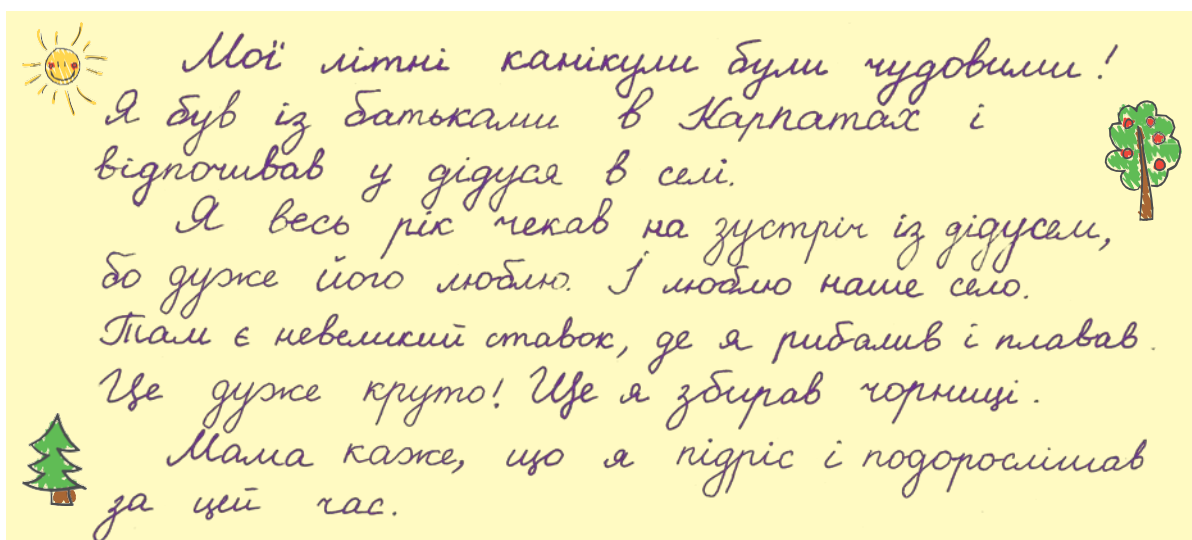 Мої літні канікули були чудовими!
Я був із батьками в Карпатах і
відпочивав у дідуся в селі.
Я весь рік чекав на зустріч із дідусем,
бо дуже його люблю. І люблю наше село.
Там є невеликий ставок, де я рибалив і плавав.
Це дуже круто! Ще я збирав чорниці.
Мама каже, що я підріс і подорослішав
за цей час.